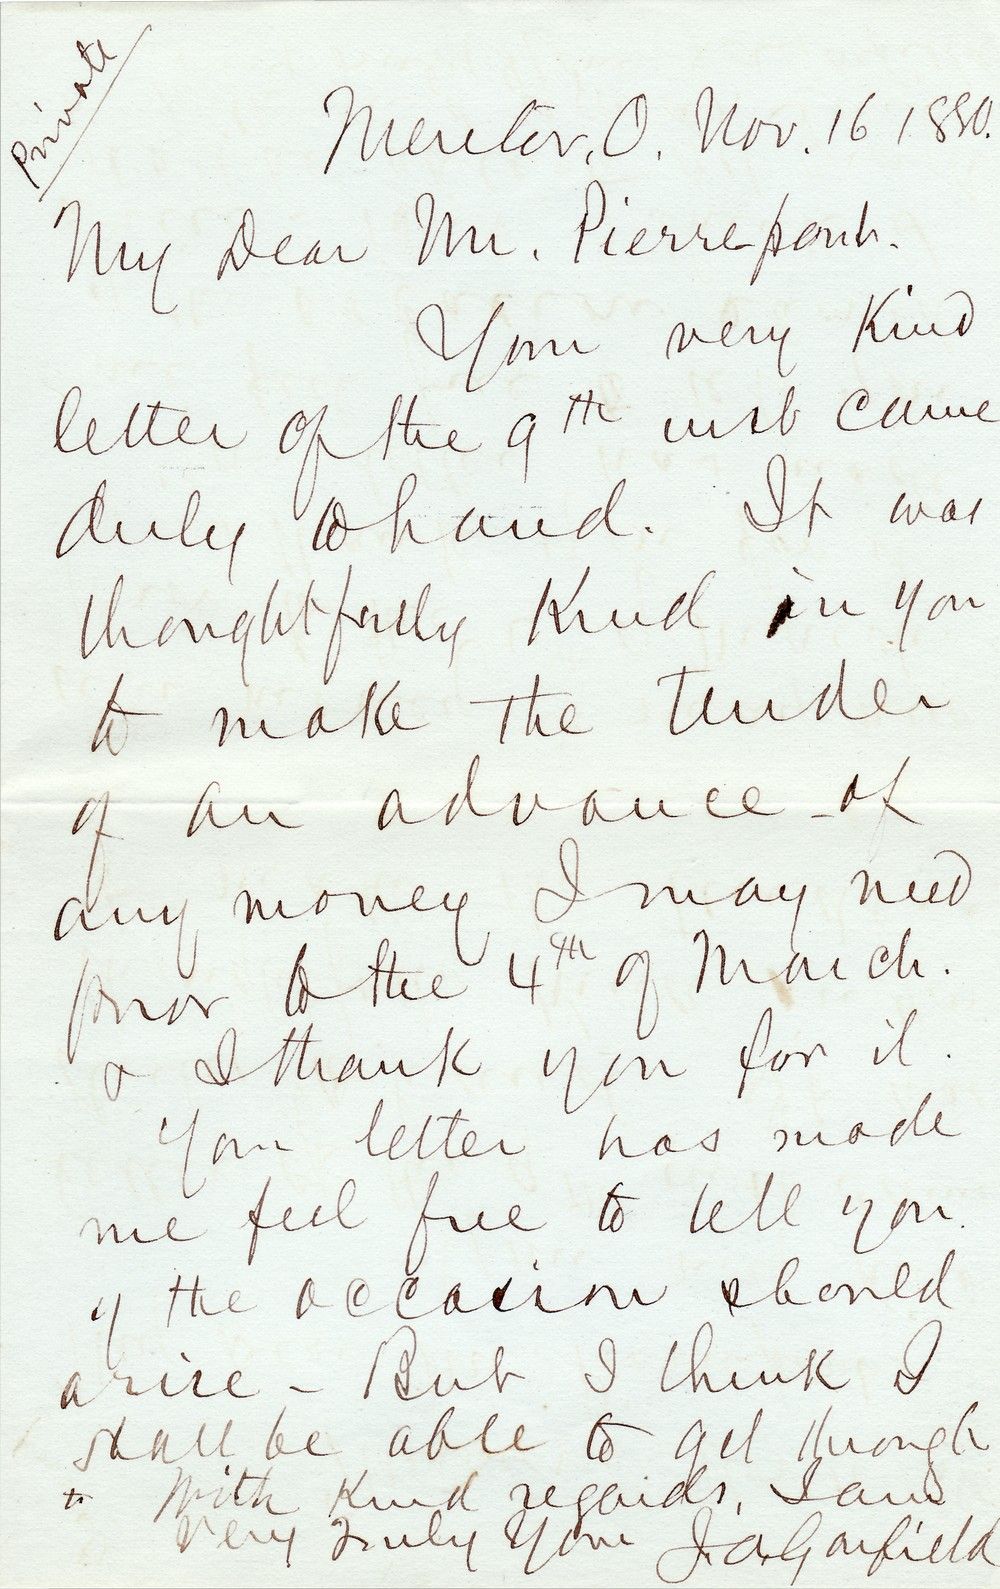 Private
Mentor, O. Nov. 16 1880.
My Dear Mr. Pierrepont.
Your very Kind
letter of the 9th inst came
duly to hand. It was
thoughtfully Kind in you
to make the tender
of an advance of
any money I may need
prior to the 4th of March.
& I thank you for it.
Your letter has made
me feel free to tell you
if the occasion should
arise - But I think I
shall be able to get through
With Kind regards, I am
Very Truly Yours J. A. Garfield